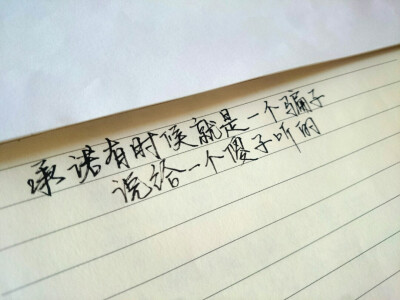 承诺有时候就是一个骗子
说给一个傻子听的